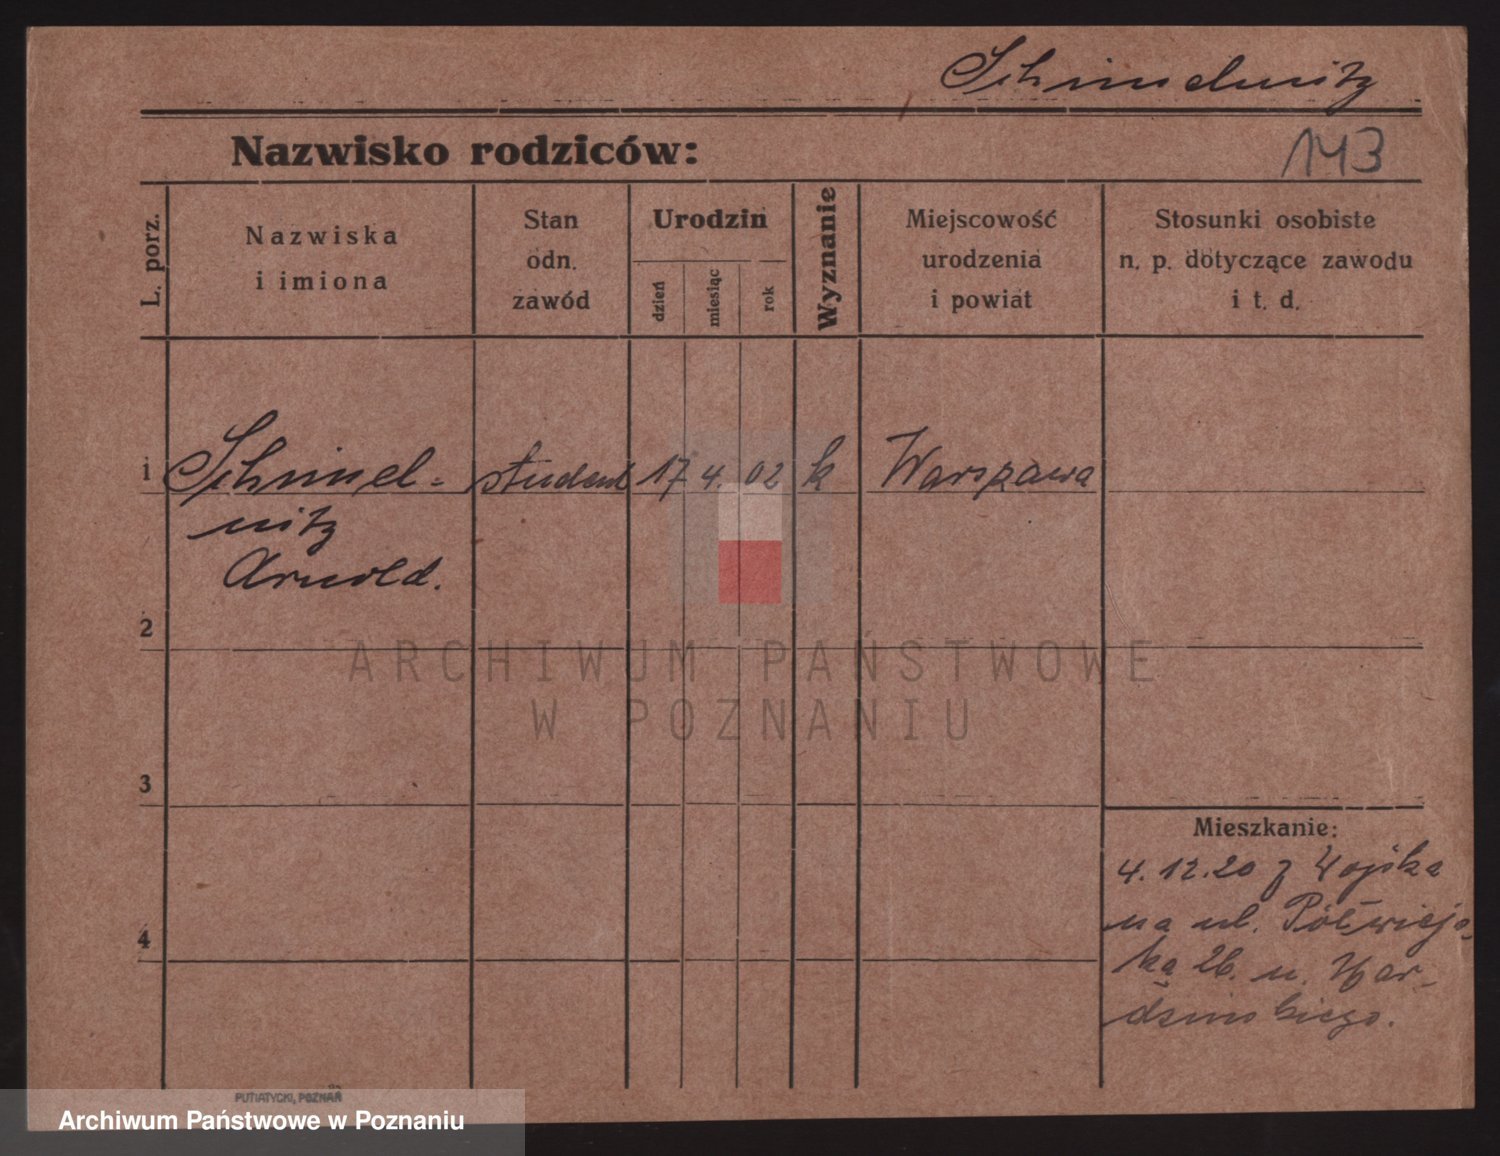 Schimmelnitz
Nazwisko rodziców:
143
L. porz.
Nazwiska
i imiona
Stan
odn.
zawód
Urodzin
dzień
miesiąc
rok
Wyznanie
Miejscowość
urodzenia
i powiat
Stosunki osobiste
n. p. dotyczące zawodu
i t. d.
1
Schimmel-
nitz
Arnold.
student
17
4.
02
k
Warszawa
2
ARCHIWUM PAŃSTWOWE
W POZNANIU
3
4
Mieszkanie:
4.12.20 z Wojska
na ul. Półwiejs-
ką 26. u.
PUTIATYCKI, POZNAŃ
Archiwum Państwowe w Poznaniu